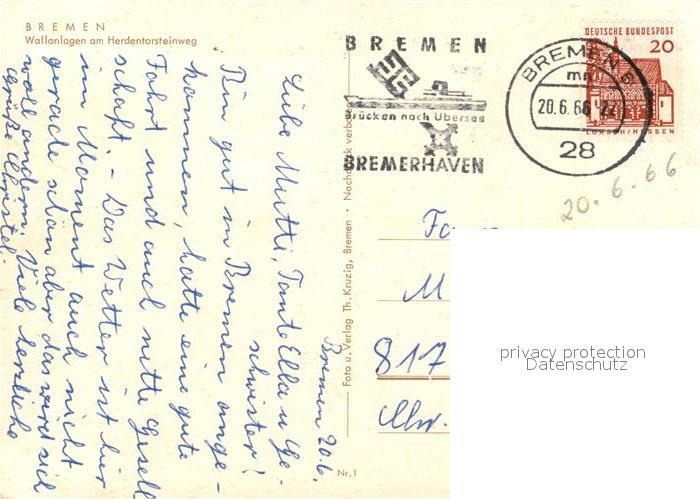 BREMEN
Wallanlagen am Herdentorsteinweg
Bremen 20.6.
Liebe Mutti, Tante Ella u Ge-
schwister!
Bin gut in Bremen ange-
kommen, hatte eine gute
Fahrt und auch nette Gesell-
schaft. - Das Wetter ist hier
im Moment auch nicht
gerade schön aber das wird sich
wohl ändern. Viele herzliche
Grüße Christel.
Foto u. Verlag Th. Kruzig, Bremen · Nachdruck verboten
Nr. 1
BREMEN
Brücken nach Übersee
BREMERHAVEN
DEUTSCHE BUNDESPOST
20
LORSCH/HESSEN
BREMEN 5
mn
20.6.66
28
20.6.66
M
817
privacy protection
Datenschutz